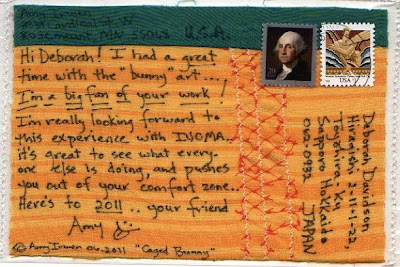 Amy
U.S.A.
Hi Deborah! I had a great
time with the "bunny" art...
I'm a big fan of your work!
I'm really looking forward to
this experience with
it's great to see what every-
one else is doing, and pushes
you out of your comfort zone..
Here's to 2011.. your friend
Amy
© Amy Irwen 2011 "Caged Bunny"
20
USA
Deborah Davidson
Hiragishi 2-11-1-22,
Toyohira-Ku
Sapporo Hokkaido
062-0932
JAPAN